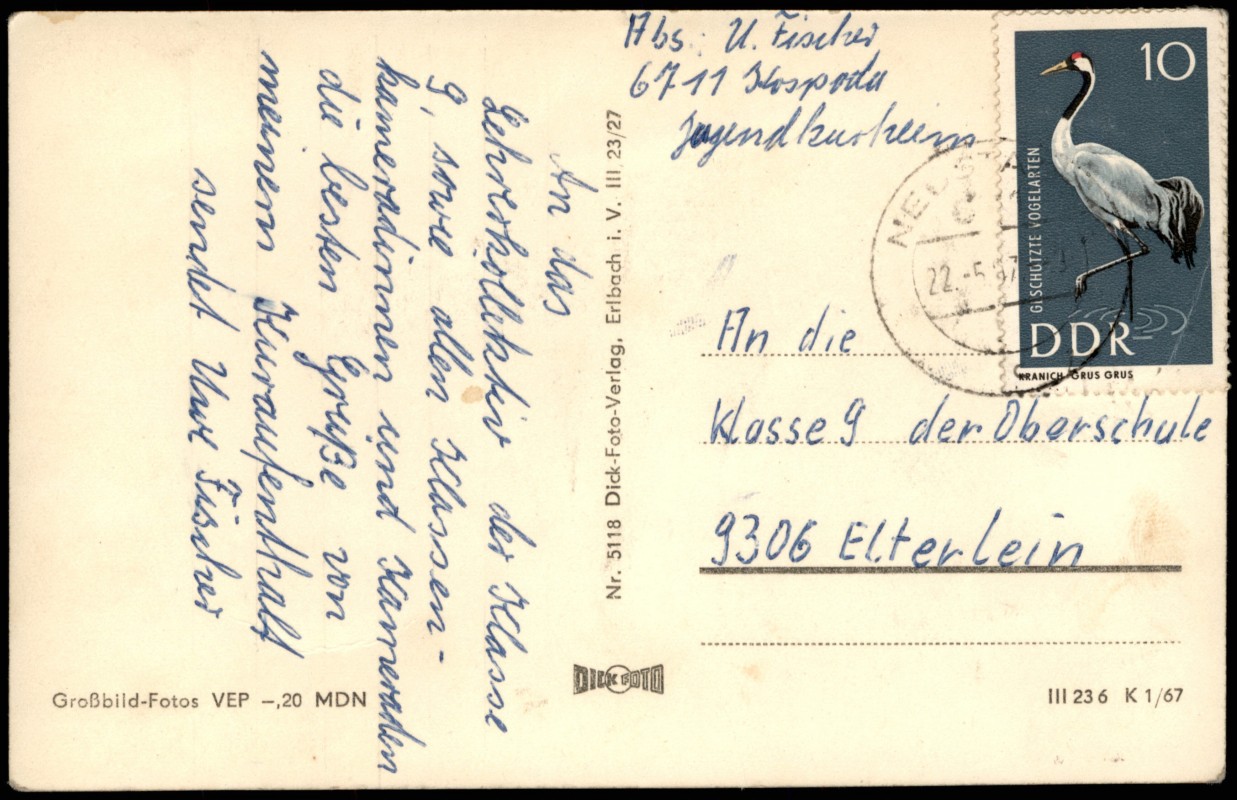 Abs: U. Fischer
6711 Kospoda
Jugendkurheim
10
GESCHÜTZTE VOGELARTEN
DDR
KRANICH GRUS GRUS
22.-5.67
An das
Lehrerkollektiv der Klasse
9, sowie allen Klassen-
kameradinnen und Kameraden
die besten Grüße von
meinem Kuraufenthalt
sendet Uwe Fischer
Nr. 5118 Dick-Foto-Verlag, Erlbach i. V. III 23/27
An die
Klasse 9 der Oberschule
9306 Elterlein
DICK FOTO
Großbild-Fotos VEP –,20 MDN
III 23 6 K 1/67